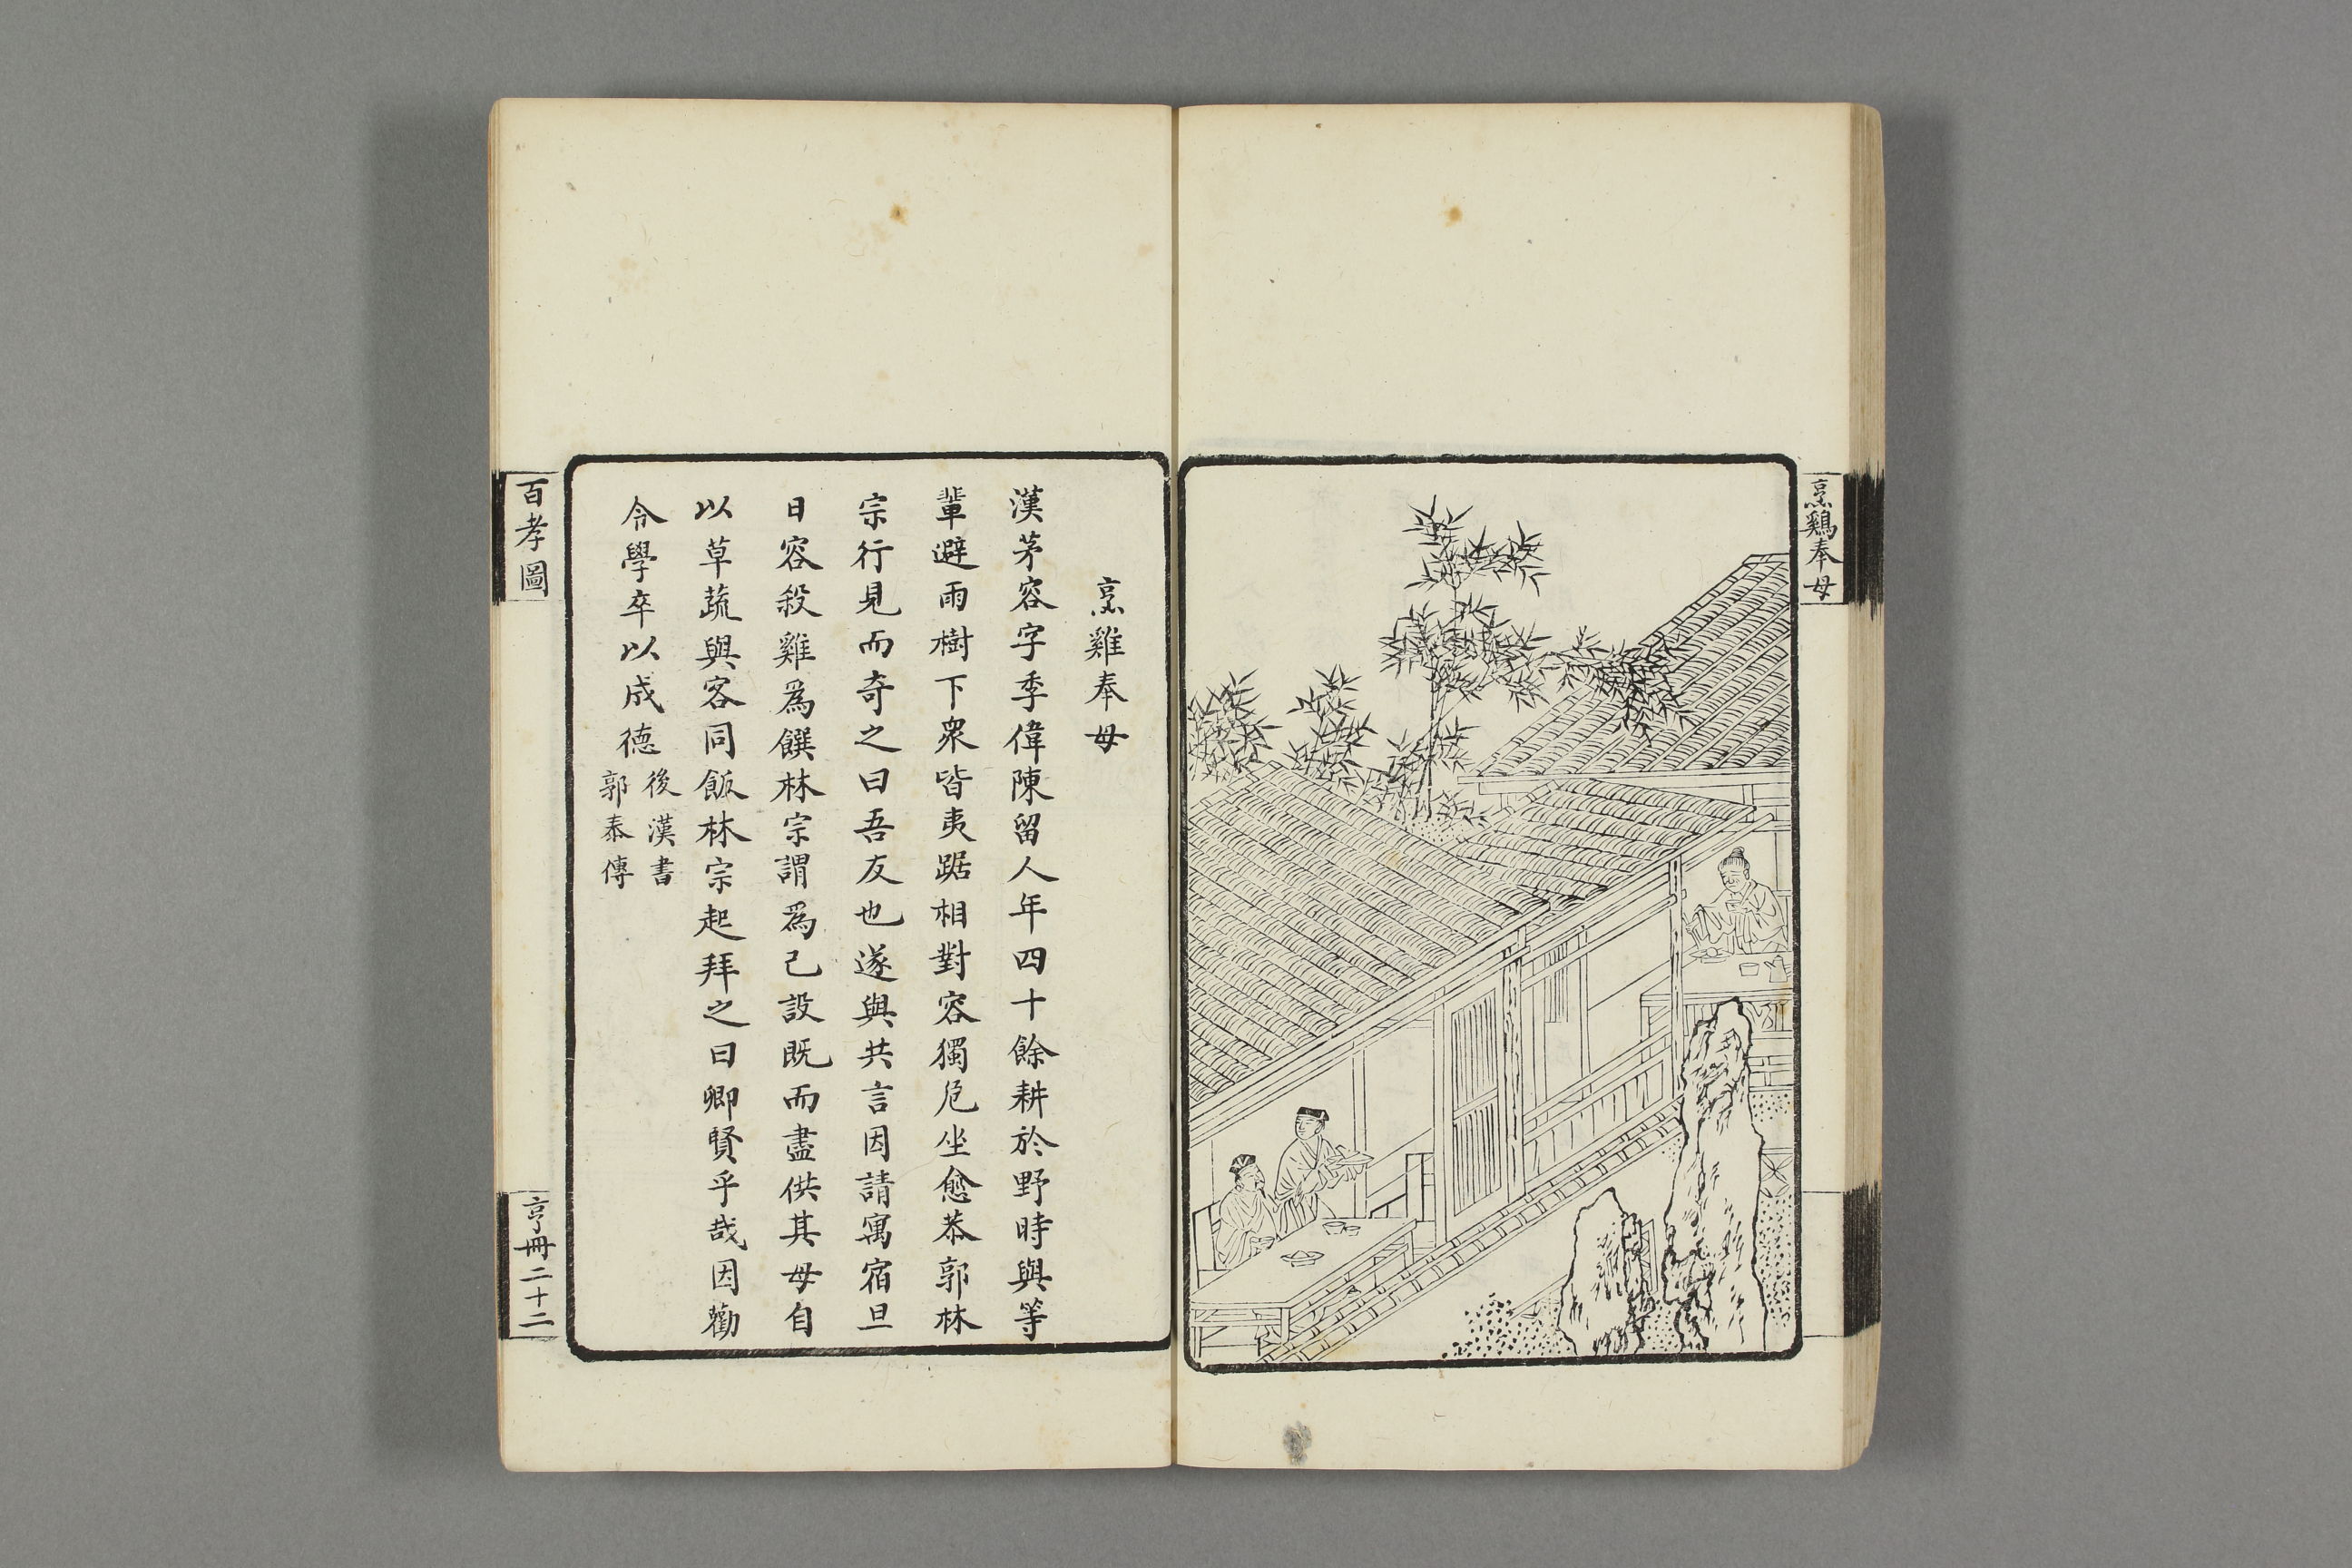 烹鷄奉母
烹雞奉母
漢茅容字季偉陳留人年四十餘耕於野時與等
輩避雨樹下衆皆夷踞相對容獨危坐愈恭郭林
宗行見而奇之曰吾友也遂與共言因請寓宿旦
日容殺雞爲饌林宗謂爲己設既而盡供其母自
以草蔬與客同飯林宗起拜之曰卿賢乎哉因勸
令學卒以成德
後漢書
郭泰傳
百孝圖
亨冊二十二